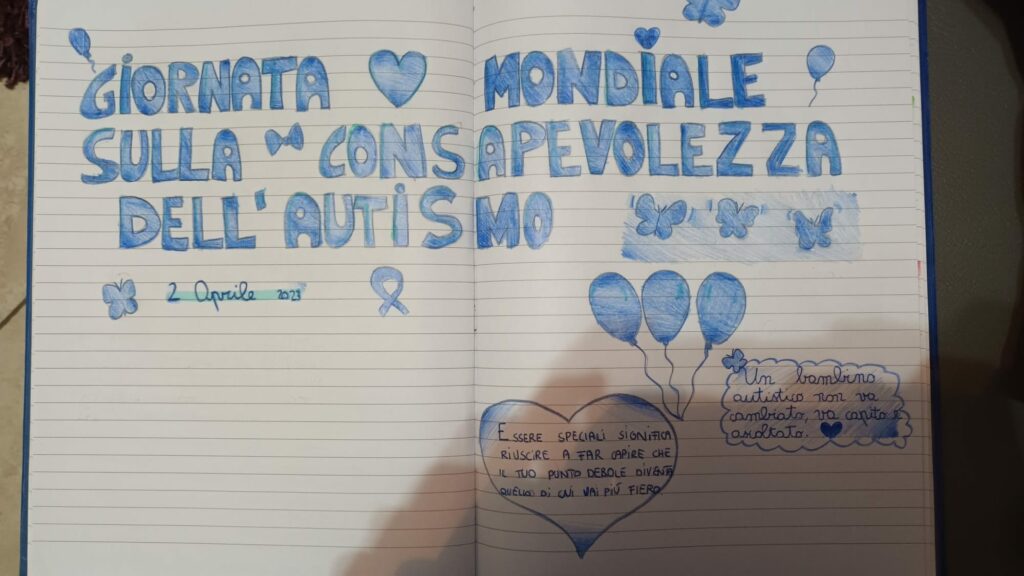 GIORNATA MONDIALE
SULLA CONSAPEVOLEZZA
DELL'AUTISMO
2 Aprile 2023
Un bambino
autistico non va
cambiato, va capito e
ascoltato.
ESSERE SPECIALI SIGNIFICA
RIUSCIRE A FAR CAPIRE CHE
IL TUO PUNTO DEBOLE DIVENTA
QUELLO DI CUI VAI PIÙ FIERO